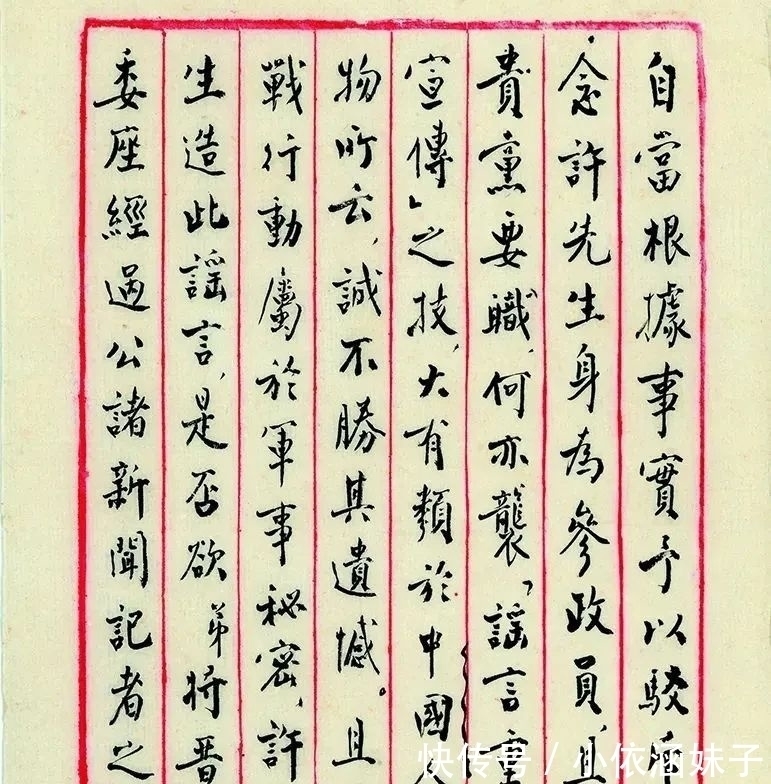 自當根據事實予以駁
念許先生身為參政員,且
貴黨要職,何亦襲「謠言重
宣傳」之技,大有類於中國
物所云,誠不勝其遺憾。且
戰行動屬於軍事秘密,許
生造此謠言,是否欲弟將晋
委座經過公諸新聞記者之
快传号 / 小依涵妹子